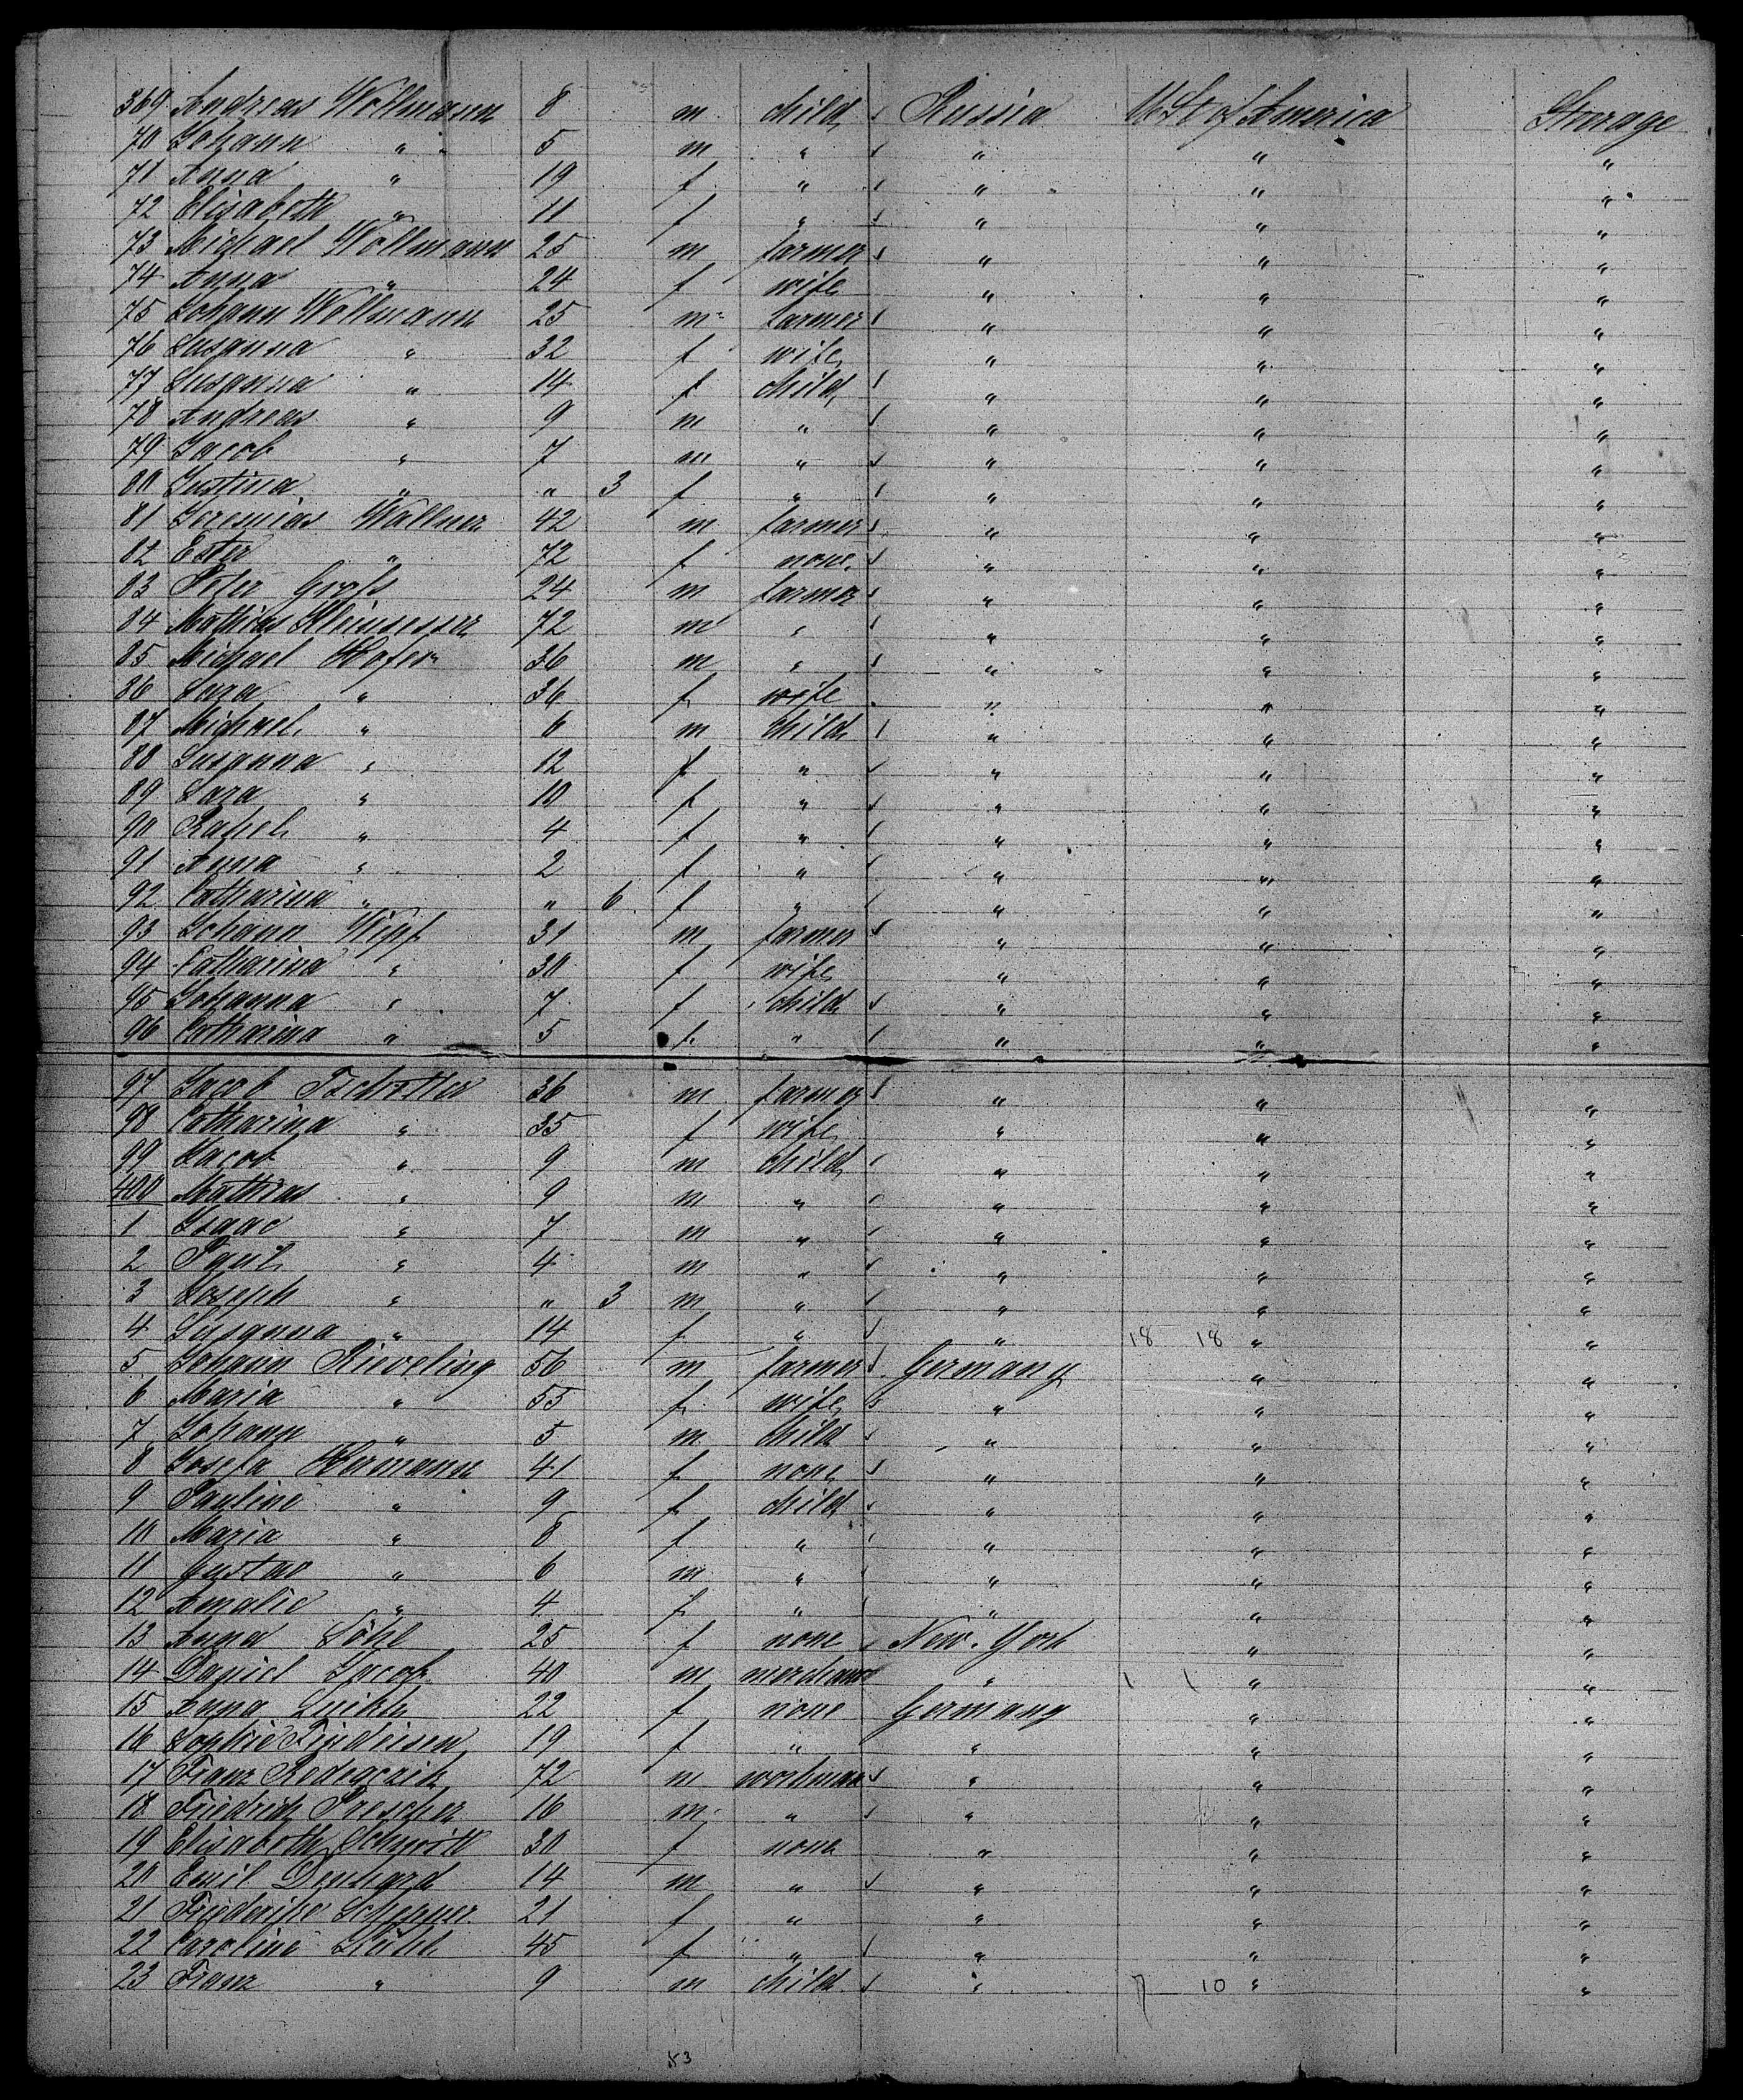 369 Andreas Wollmann 8 m child Russia U. St. of America Sterage
70 Johann " 5 m " " " "
71 Anna " 19 f " " " "
72 Elisabeth " 11 f " " " "
73 Michael Wollmann 25 m farmer " " "
74 Anna " 24 f wife " " "
75 Johann Wollmann 25 m farmer " " "
76 Susanna " 32 f wife " " "
77 Susanna " 14 f child " " "
78 Andreas " 9 m " " " "
79 Jacob " 7 m " " " "
80 Justina " " 3 f " " " "
81 Jeremias Wallner 42 m farmer " " "
82 Ester " 72 f none " " "
83 Peter Groß 24 m farmer " " "
84 Mathias Kleinsesser 72 m " " " "
85 Michael Hofer 36 m " " " "
86 Sara " 36 f wife " " "
87 Michael " 6 m child " " "
88 Susanna " 12 f " " " "
89 Sara " 10 f " " " "
90 Rahel " 4 f " " " "
91 Anna " 2 f " " " "
92 Catharina " " 6 f " " " "
93 Johann Wipf 31 m farmer " " "
94 Catharina " 30 f wife " " "
95 Johanna " 7 f child " " "
96 Catharina " 5 f " " " "
97 Jacob Tschetter 36 m farmer " " "
98 Catharina " 35 f wife " " "
99 Jacob " 9 m child " " "
400 Mathias " 9 m " " " "
1 Isaac " 7 m " " " "
2 Paul " 4 m " " " "
3 Joseph " " 3 m " " " "
4 Susanna " 14 f " " 18 18 " "
5 Johann Rieveling 56 m farmer Germany " "
6 Maria " 55 f wife " " "
7 Johann " 5 m child " " "
8 Josefa Hermann 41 f none " " "
9 Pauline " 9 f child " " "
10 Maria " 8 f " " " "
11 Gustav " 6 m " " " "
12 Amalie " 4 f " " " "
13 Anna 25 f none New York " "
14 Daniel Jacob 40 m merchant " 1 1 " "
15 Anna 22 f none Germany " "
16 Sophie 19 f " " " "
17 Franz 72 m workman " " "
18 Friedrich Prescher 16 m " " " "
19 Elisabeth Schmitt 30 f none " " "
20 Emil 14 m " " " "
21 Friederike 21 f " " " "
22 Caroline 45 f " " " "
23 Franz " 9 m child " 7 10 " "
53